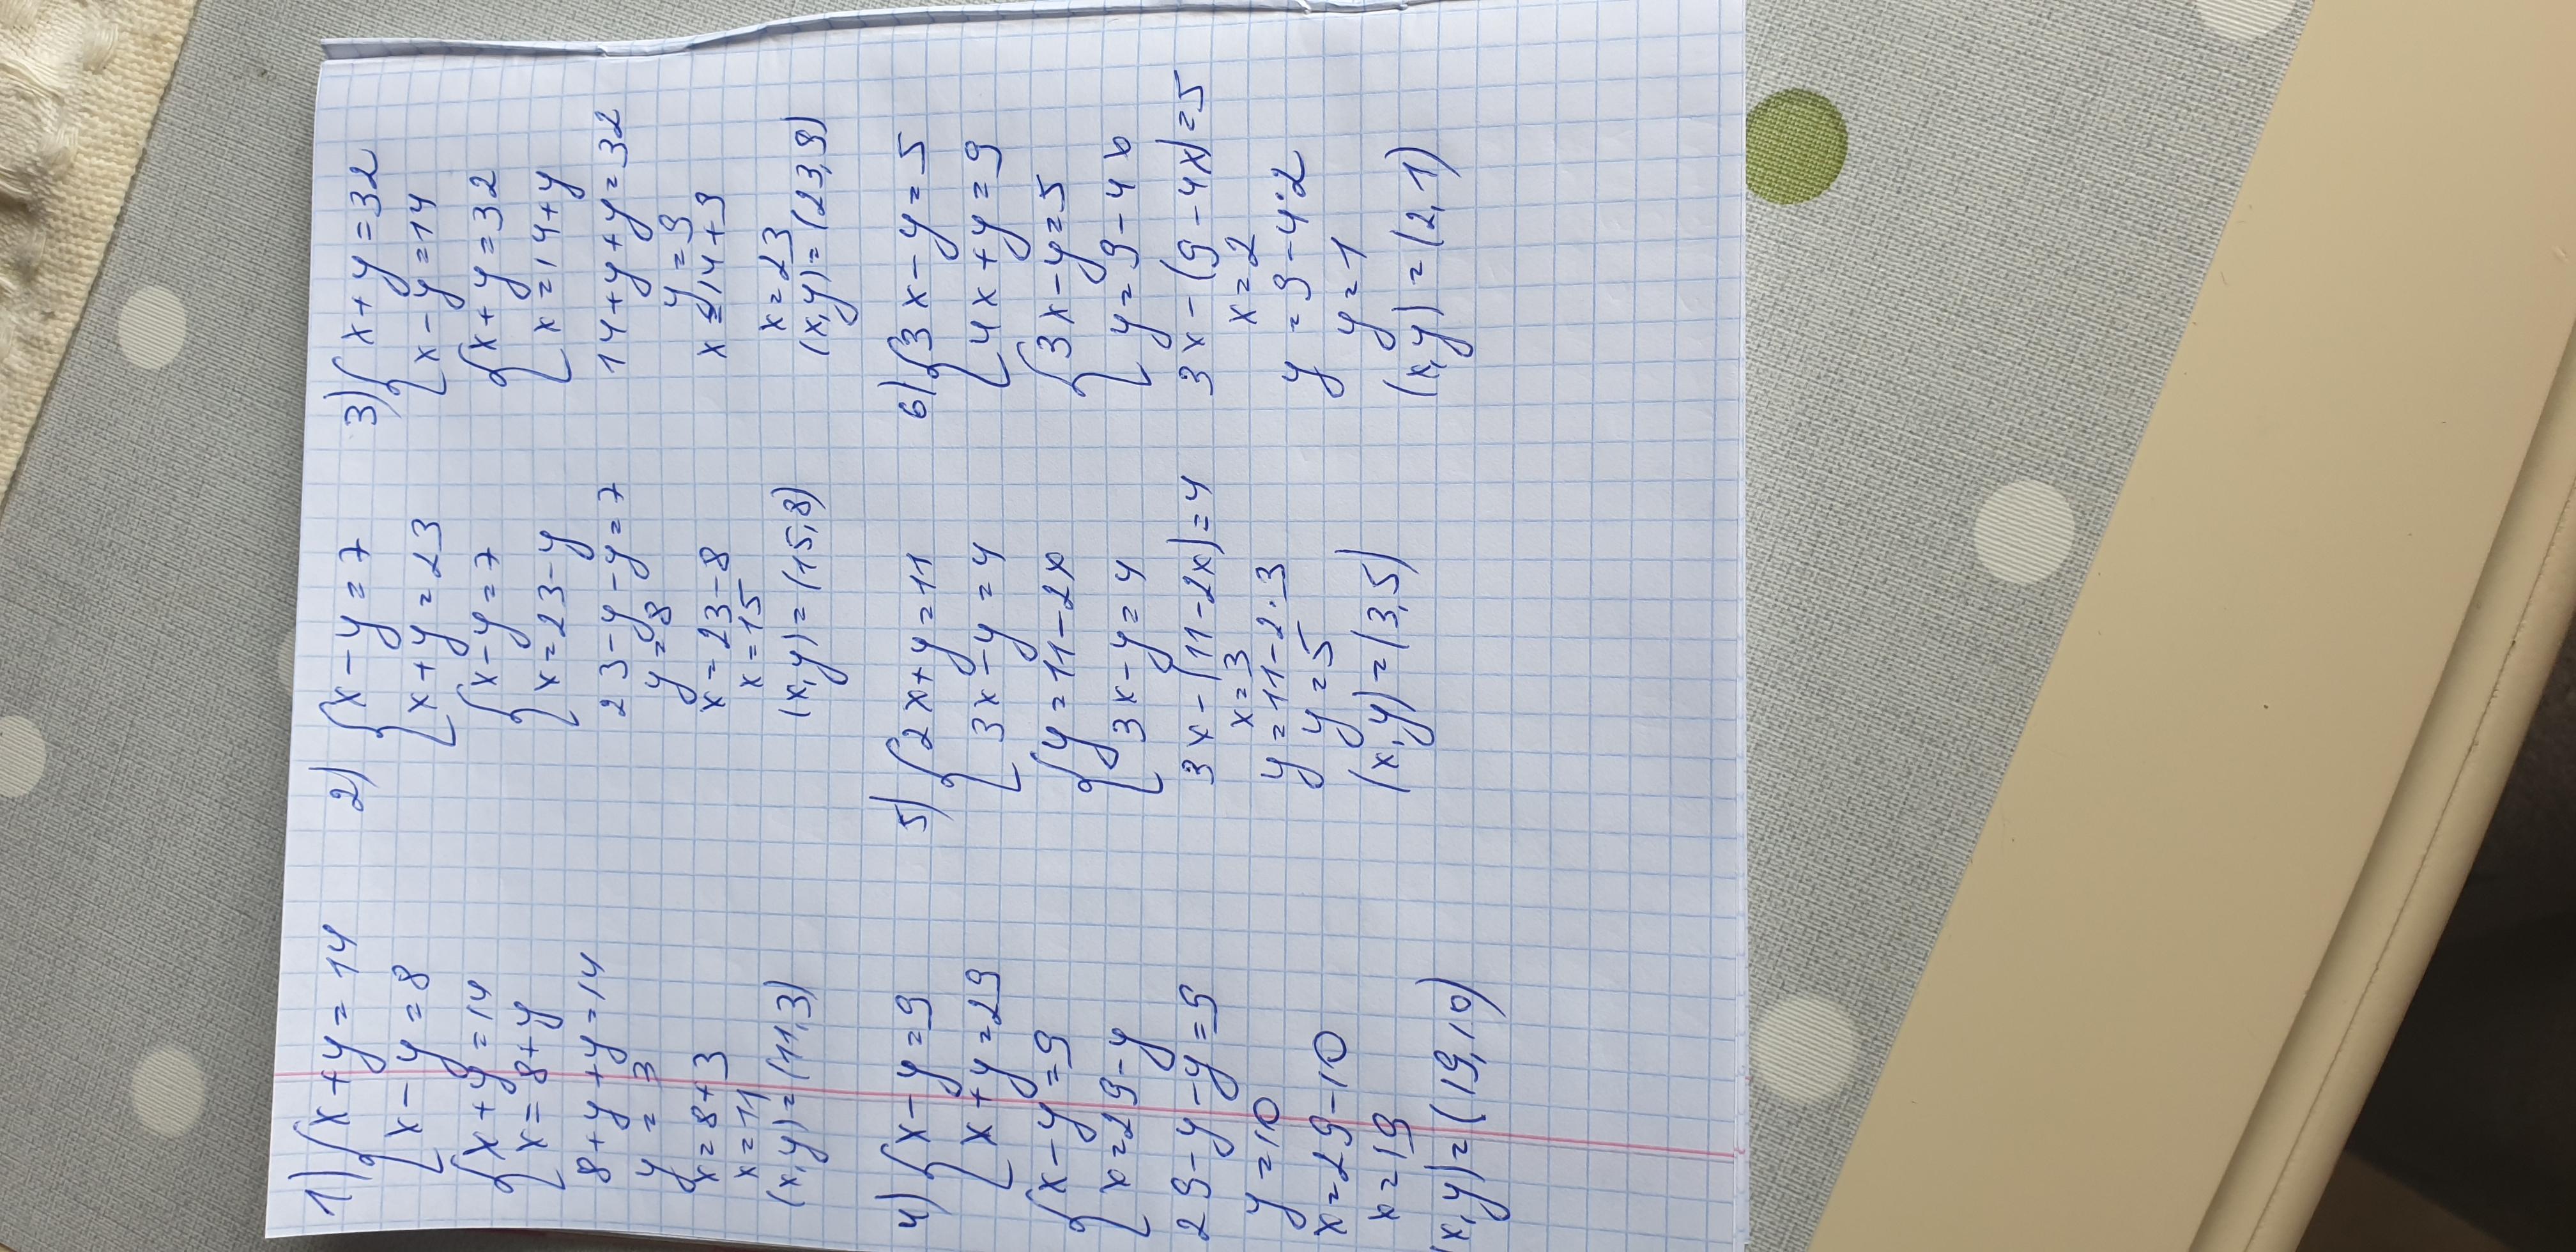 1) { x + y = 14
x - y = 8
{ x + y = 14
x = 8 + y
8 + y + y = 14
y = 3
x = 8 + 3
x = 11
(x, y) = (11, 3)
2) { x - y = 7
x + y = 23
{ x - y = 7
x = 23 - y
23 - y - y = 7
y = 8
x = 23 - 8
x = 15
(x, y) = (15, 8)
3) { x + y = 32
x - y = 14
{ x + y = 32
x = 14 + y
14 + y + y = 32
y = 9
x = 14 + 9
x = 23
(x, y) = (23, 9)
4) { x - y = 9
x + y = 29
{ x - y = 9
x = 29 - y
29 - y - y = 9
y = 10
x = 29 - 10
x = 19
(x, y) = (19, 10)
5) { 2x + y = 11
3x - y = 4
{ y = 11 - 2x
3x - y = 4
3x - (11 - 2x) = 4
x = 3
y = 11 - 2 · 3
y = 5
(x, y) = (3, 5)
6) { 3x - y = 5
4x + y = 9
{ 3x - y = 5
y = 9 - 4x
3x - (9 - 4x) = 5
x = 2
y = 9 - 4 · 2
y = 1
(x, y) = (2, 1)